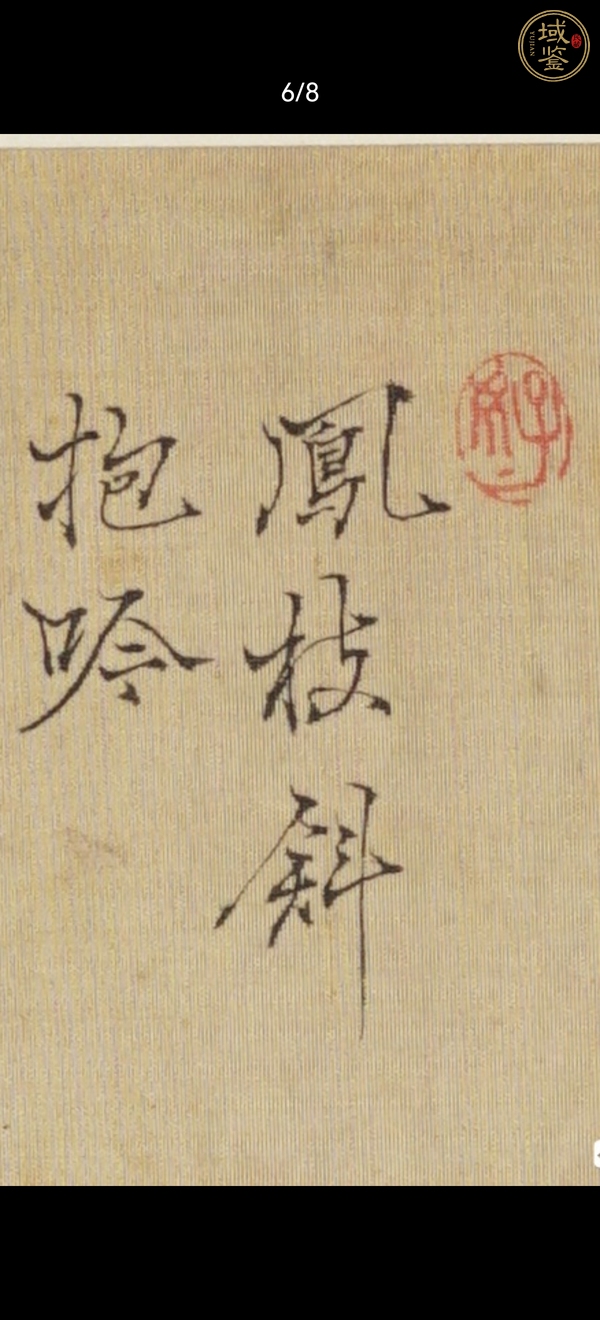 域鉴
YUJIAN
6/8
鳳枝斜
抱吟